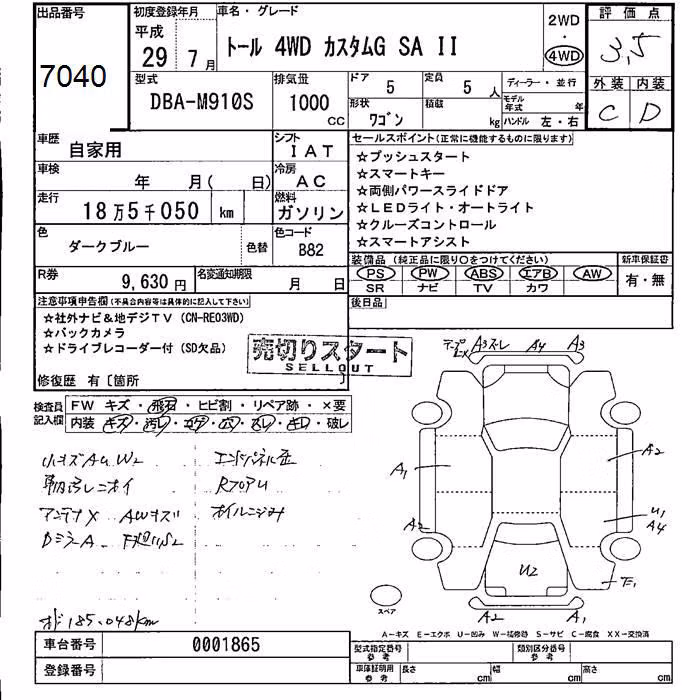 出品番号
7040
初度登録年月
平成
29年7月
車名・グレード
トール 4WD カスタムG SA II
2WD
・
4WD
評価点
3,5
外装 内装
C D
型式
DBA-M910S
排気量
1000
CC
ドア
5
定員
5人
ディーラー・並行
形状
ワゴン
積載
kg
モデル年式
年
ハンドル 左・右
車歴
自家用
シフト
IAT
車検
年 月( 日)
冷房
AC
走行
18万5千050 km
燃料
ガソリン
色
ダークブルー
色替
色コード
B82
R券
9,630円
名変通知期限
月 日
セールスポイント(正常に機能するものに限ります)
☆プッシュスタート
☆スマートキー
☆両側パワースライドドア
☆LEDライト・オートライト
☆クルーズコントロール
☆スマートアシスト
装備品(純正品に限り○をつけてください)
新車保証書
PS PW ABS エアB AW
SR ナビ TV カワ
有・無
後日品
注意事項申告欄(不具合内容等は具体的に記入して下さい)
☆社外ナビ&地デジTV(CN-RE03WD)
☆バックカメラ
☆ドライブレコーダー付(SD欠品)
売切りスタート
SELLOUT
修復歴 有〔箇所
検査員記入欄
FW キズ・飛石・ヒビ割・リペア跡・×要
内装・キズ・汚レ・コゲ・穴・スレ・キレ・破レ
小キズAUW2
エンドパネル歪
車内汚レニオイ
RフロアU
アンテナX AWキズ
オイルニジみ
DミラーA
185,048km
A3
スレ
A4
A3
A1
A2
A2
U1
A4
U2
A2
A1
スペア
A-キズ E-エクボ U-凹み W-補修跡 S-サビ C-腐食 XX-交換済
車台番号
0001865
登録番号
型式指定番号
参考
類別区分番号
参考
車庫証明用
参考
長さ
cm
幅
cm
高さ
cm